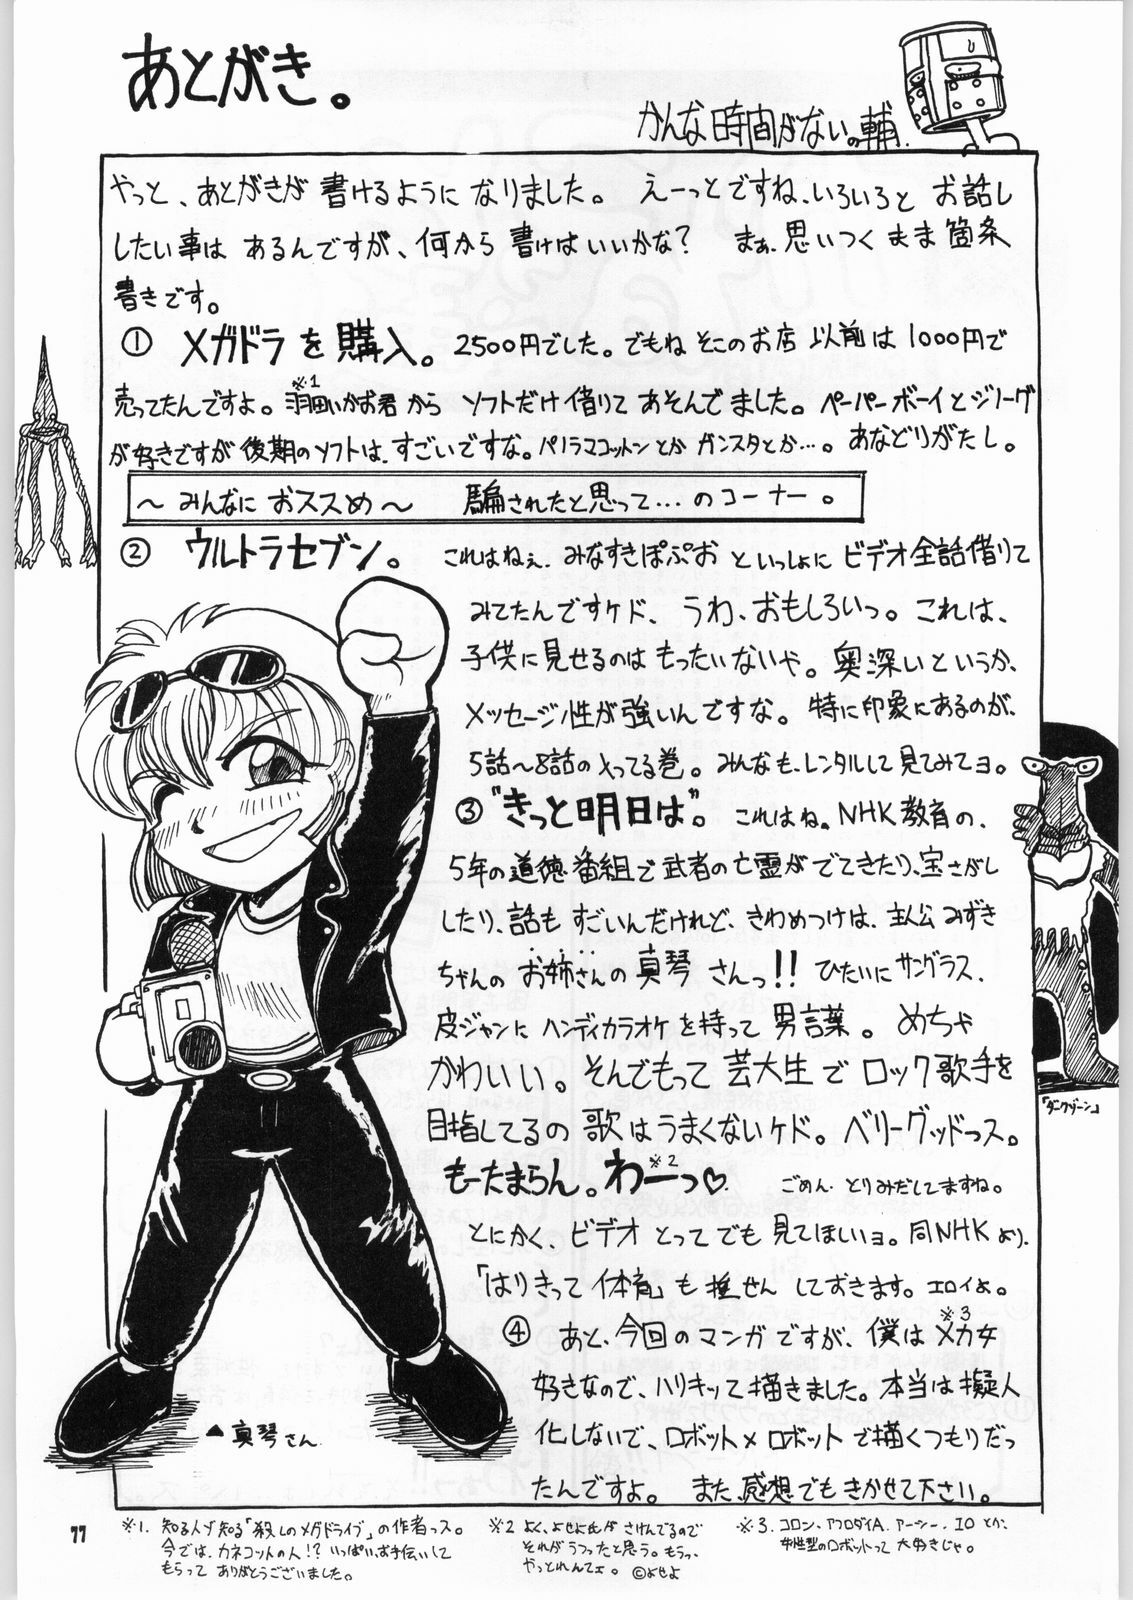 あとがき。
かんな時間がないの輔.
やっと、あとがきが 書けるように なりました。 えーっとですね、いろいろと お話し
したい事は あるんですが、何から 書けばいいかな? まぁ、思いつく まま 箇条
書きです。
① メガドラ を 購入。 2500円でした。でもね そこのお店 以前は 1000円で
売ってたんですよ。羽田いかお君 から ソフトだけ 借りて あそんでました。ペーパーボーイとジリーグ
※1
が好きですが 後期のソフトは、すごいですな。パノラマコットンとか ガンスタとか…。あなどりがたし。
～みんなに おススめ～ 騙されたと思って…のコーナー。
② ウルトラセブン。 これはねぇ、みなすきぽぷお といっしょに ビデオ全話借りて
みてたんですケド、うわ、おもしろいっ。これは、
子供に見せるのは もったいないや。奥深いというか、
メッセージ性が強いんですな。特に印象にあるのが、
5話～8話の入ってる巻。みんなも、レンタルして見てみてヨ。
③ "きっと明日は"。 これはね。NHK教育の、
5年の道徳番組で武者の亡霊がでてきたり、宝さがし
したり、話も すごいんだけれど、きわめつけは、主人公みずき
ちゃんの お姉さんの 真琴 さんっ!! ひたいにサングラス、
皮ジャンに ハンディカラオケ を持って 男言葉。 めちゃ
かわいい。そんでもって 芸大生で ロック歌手を
目指してるの 歌はうまくないケド。ベリーグッドっス。
もーたまらん。わーっ♡. ごめん、とりみだしてますね。
※2
とにかく、ビデオ とって でも 見てほしいョ。同NHK より、
「はりきって 体育」も 推せん しておきます。エロイよ。
④ あと、今回のマンガですが、僕は メカ女
※3
好きなので、ハリキって描きました。本当は擬人
化しないで、ロボット×ロボット で描くつもりだっ
たんですよ。 また、感想でも きかせて下さい。
▲真琴さん
「ダークゾーン」
77
※1. 知る人ゾ知る「殺しのメガドライブ」の作者っス。
今では、カネコットの人!? いっぱい、お手伝いして
もらって ありがとうございました。
※2 よく、よせよ氏が さけんでるので
それがうつったと思う。もうっ、
やっとれんてェ。 ©よせよ
※3. コロン、アフロダイA、アーシー、IO とか、
女性型のロボットって 大好きじゃ。